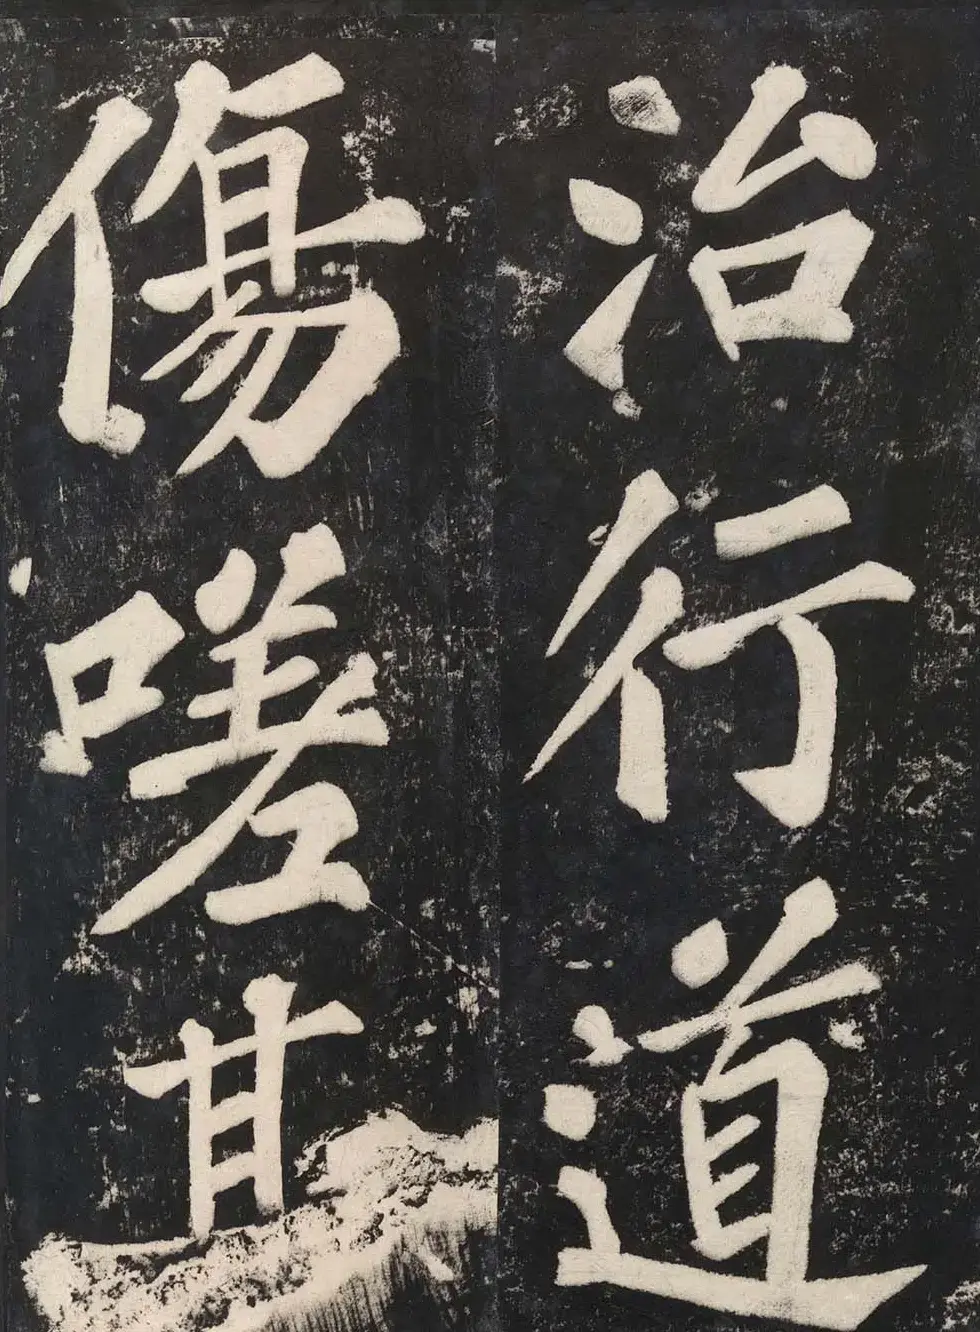 治行道
傷嗟其